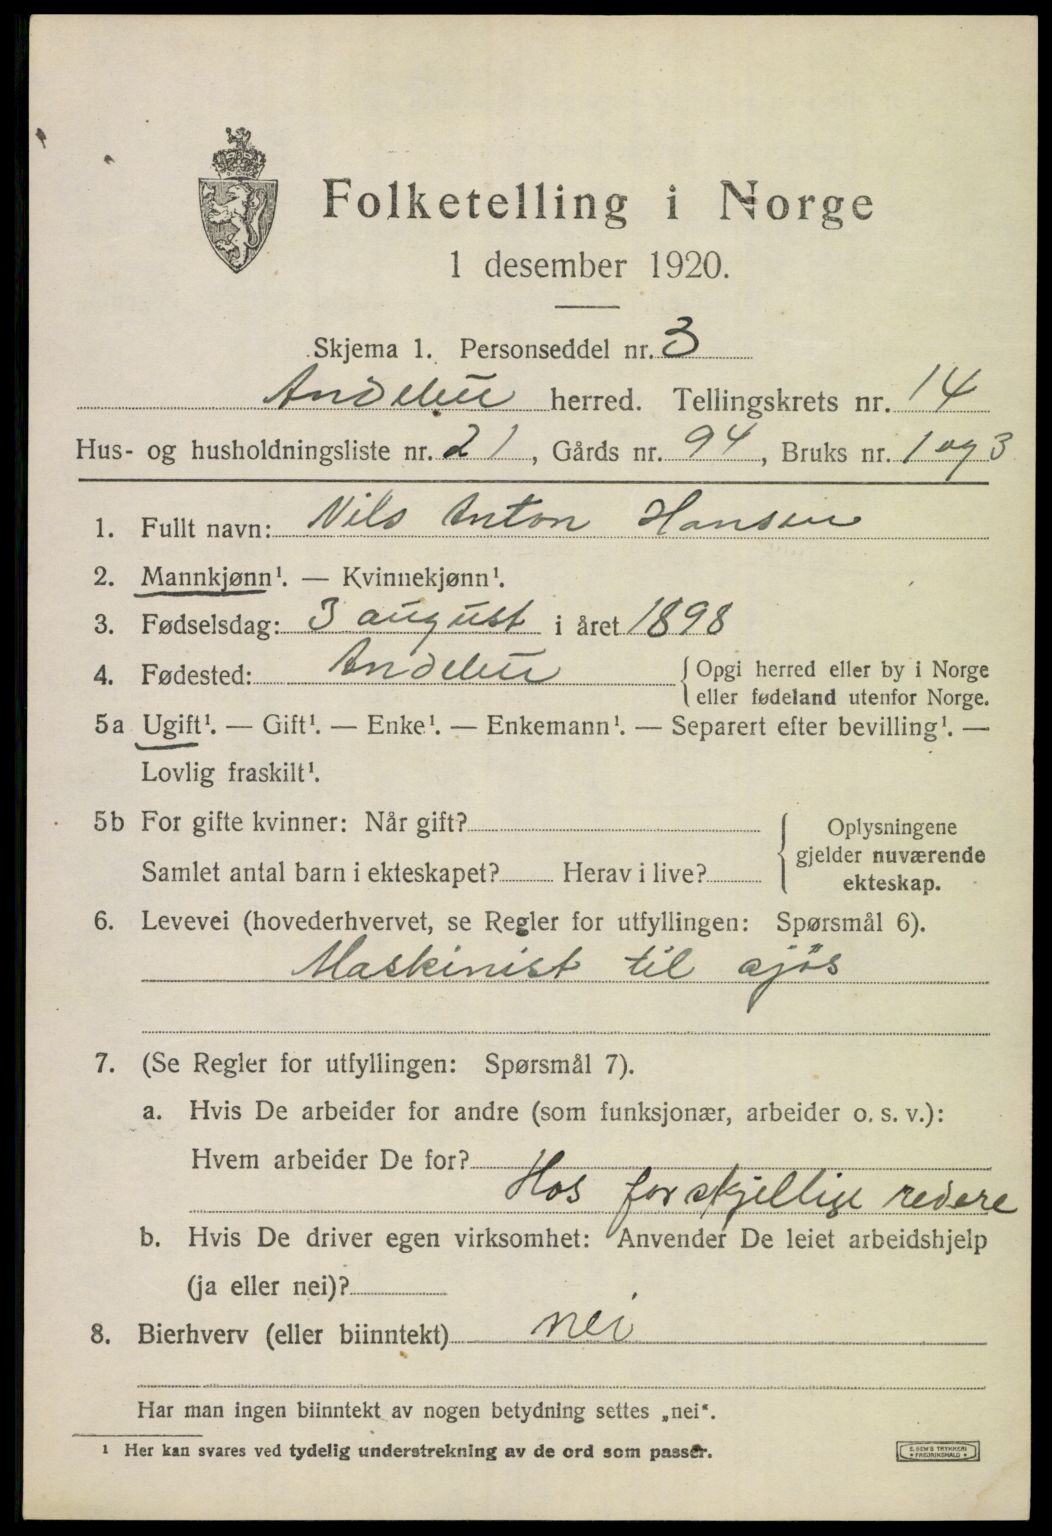 Folketelling i Norge
1 desember 1920.
Skjema 1. Personseddel nr. 3
Andebu herred. Tellingskrets nr. 14
Hus- og husholdningsliste nr. 21, Gårds nr. 94, Bruks nr. 1 og 3
1. Fullt navn: Nils Anton Hansen
2. Mannkjønn¹. — Kvinnekjønn¹.
3. Fødselsdag: 3 august i året 1898
4. Fødested: Andebu {Opgi herred eller by i Norge
eller fødeland utenfor Norge.
5a Ugift¹. — Gift¹. — Enke¹. — Enkemann¹. — Separert efter bevilling¹. —
Lovlig fraskilt¹.
5b For gifte kvinner: Når gift?
Samlet antal barn i ekteskapet? Herav i live?
{Oplysningene
gjelder nuværende
ekteskap.
6. Levevei (hovederhvervet, se Regler for utfyllingen: Spørsmål 6).
Maskinist til sjös
7. (Se Regler for utfyllingen: Spørsmål 7).
a. Hvis De arbeider for andre (som funksjonær, arbeider o. s. v.):
Hvem arbeider De for?
Hos forskjellige redere
b. Hvis De driver egen virksomhet: Anvender De leiet arbeidshjelp
(ja eller nei)?
8. Bierhverv (eller biinntekt) nei
Har man ingen biinntekt av nogen betydning settes „nei“.
¹ Her kan svares ved tydelig understrekning av de ord som passer.
E. SEM'S TRYKKERI
• FREDRIKSHALD •